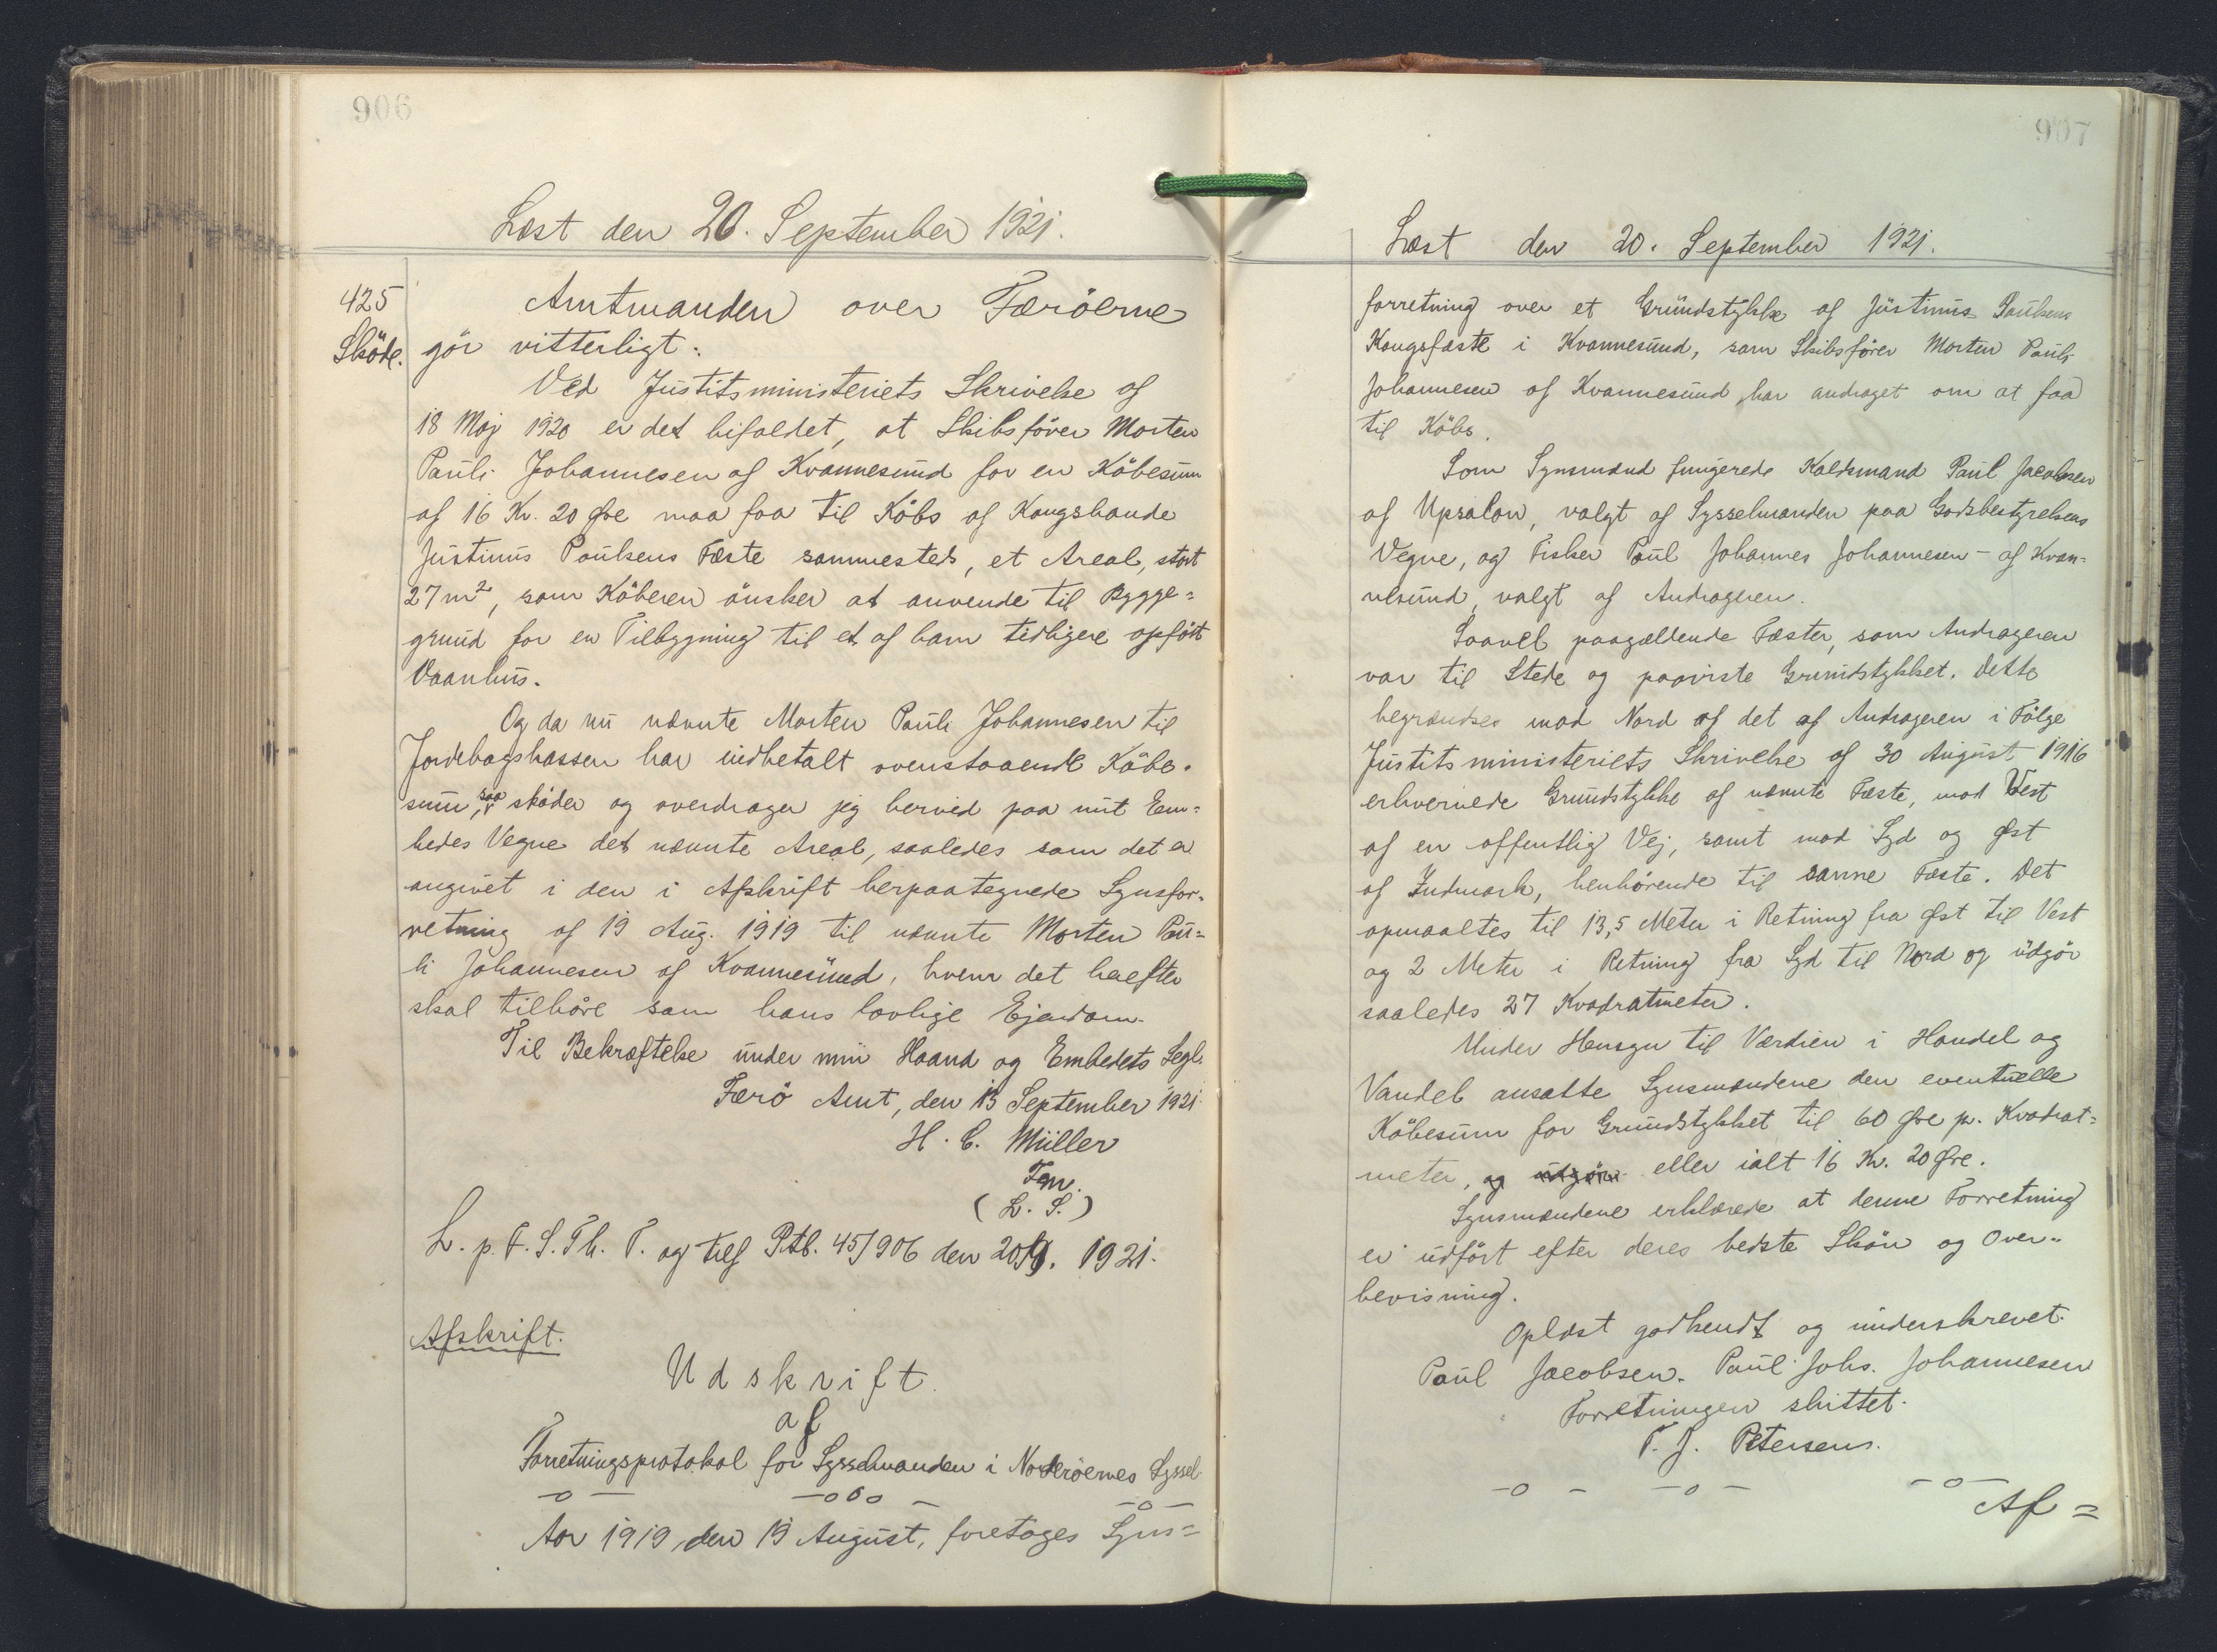 906
Læst den 20. September 1921.
425
Sköde.
Amtmanden over Færöerne
gör vitterligt:
Ved Justitsministeriets Skrivelse af
18 Maj 1920 er det bifaldet, at Skibsförer Morten
Pauli Johannesen af Kvannesund for en Köbesum
af 16 Kr. 20 Øre maa faa til Köbs af Kongsbonde
Justinus Poulsens Fæste sammesteds, et Areal, stort
27 m², som Köberen önsker at anvende til Bygge=
grund for en Tilbygning til et af ham tidligere opfört
Vaanhus.
Og da nu nævnte Morten Pauli Johannesen til
Jordebogskassen har indbetalt ovenstaaende Köbe-
sum, saa sköder og overdrager jeg herved paa mit Em=
bedes Vegne det nævnte Areal, saaledes som det er
angivet i den i Afskrift herpaategnede Synsfor-
retning af 19 Aug. 1919 til nævnte Morten Pau=
li Johannesen af Kvannesund, hvem det herefter
skal tilhöre som hans lovlige Ejendom.
Til Bekræftelse under min Haand og Embedets Segl.
Færö Amt, den 13 September 1921
H. C. Müller
Fm.
(L. S.)
L. p. F. S. Th. T. og tilf Ptb. 45/906 den 20/9. 1921.
Afskrift.
Udskrift
af
Forretningsprotokol for Sysselmanden i Norderöernes Syssel.
—o— —ooo— —o—
Aar 1919 den 19 August, foretoges Syns=
907
Læst den 20. September 1921.
forretning over et Grundstykke af Justinus Poulsens
Kongsfæste i Kvannesund, som Skibsförer Morten Pauli
Johannesen af Kvannesund har andraget om at faa
til Köbs.
Som Synsmænd fungerede Kaldsmand Paul Jacobsen
af Upsalon, valgt af Sysselmanden paa Godsbestyrelsens
Vegne, og Fisker Paul Johannes Johannesen - af Kvan=
nesund, valgt af Andrageren.
Saavel paagældende Fæster, som Andrageren
var til Stede og paaviste Grundstykket. Dette
begrændses mod Nord af det af Andrageren i Fölge
Justitsministeriets Skrivelse af 30 August 1916
erhvervede Grundstykke af nævnte Fæste, mod Vest
af en offentlig Vej, samt mod Syd og Øst
af Indmark, henhörende til samme Fæste. Det
opmaaltes til 13,5 Meter i Retning fra Øst til Vest
og 2 Meter i Retning fra Syd til Nord og udgör
saaledes 27 Kvadratmeter.
Under Hensyn til Værdien i Handel og
Vandel ansatte Synsmændene den eventuelle
Köbesum for Grundstykket til 60 Øre p. Kvadrat=
meter, og udgör eller ialt 16 Kr. 20 Øre.
Synsmændene erklærede at denne Forretning
er udfört efter deres bedste Skön og Over-
bevisning.
Oplæst godkendt og underskrevet.
Paul Jacobsen. Paul Johs. Johannesen
Forretningen sluttet.
T. J. Petersen.
—o— —o— —o—
Af=